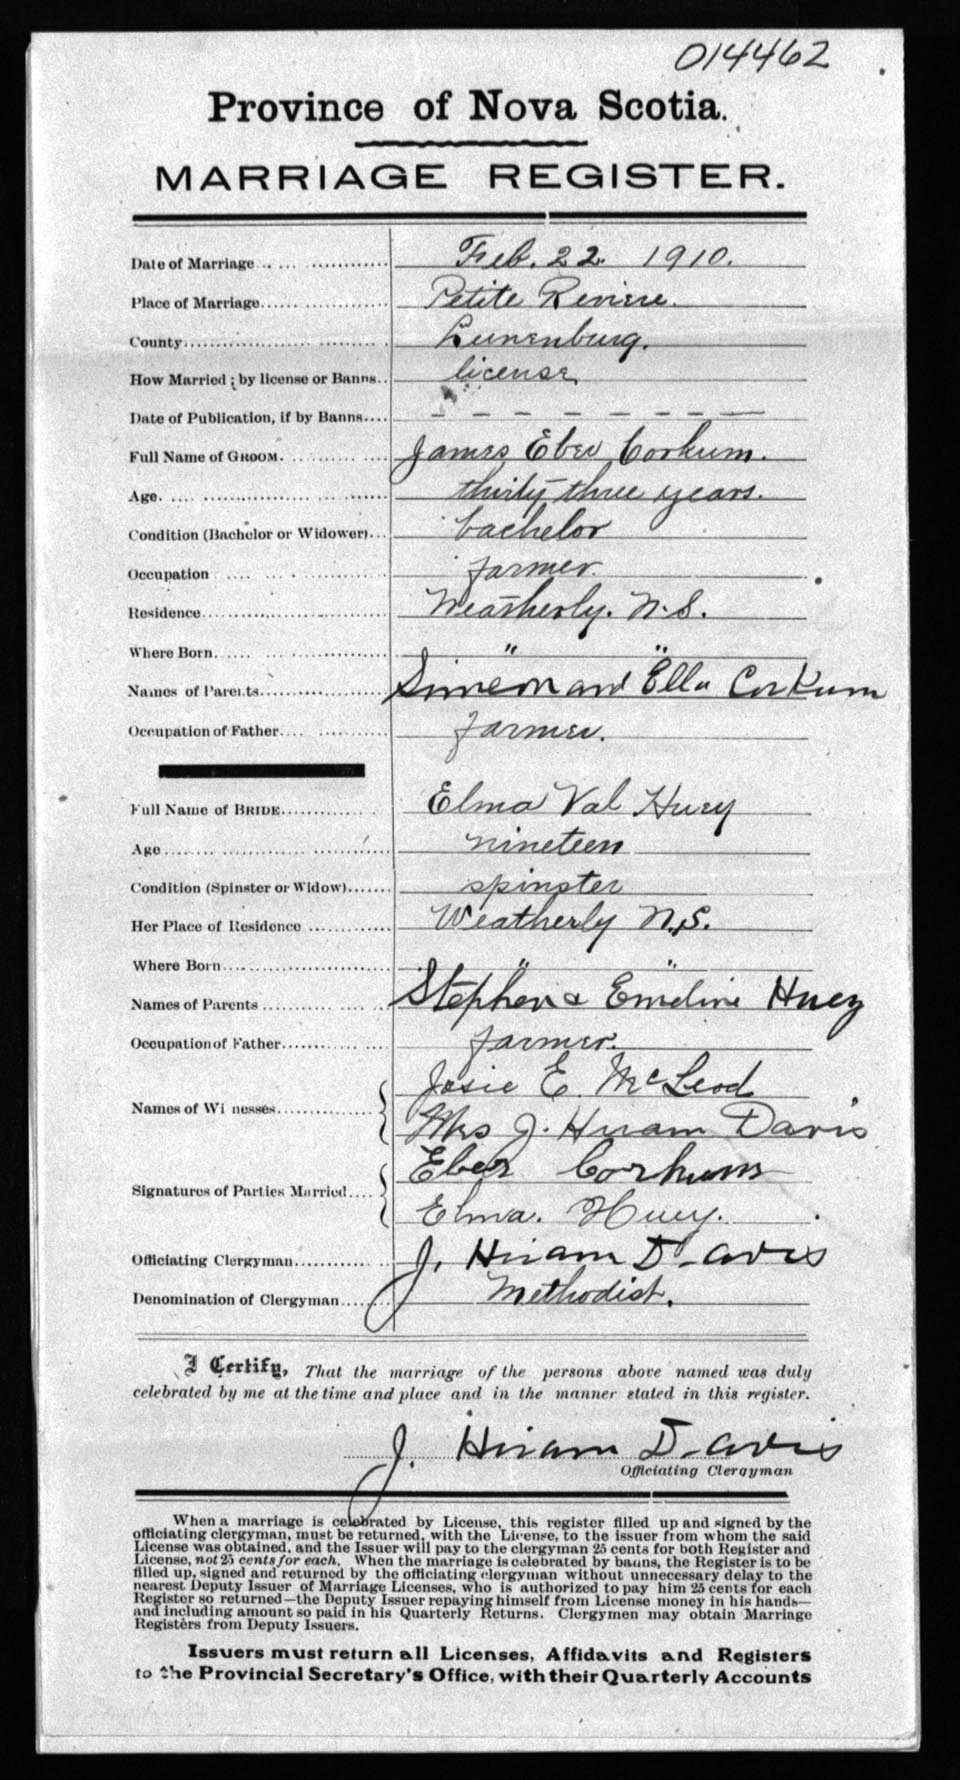 014462
Province of Nova Scotia.
MARRIAGE REGISTER.
Date of Marriage Feb. 22. 1910.
Place of Marriage Petite Reviere.
County Lunenburg.
How Married; by license or Banns license
Date of Publication, if by Banns – – – – – – – –
Full Name of GROOM. James Eber Corkum.
Age. thirty three years.
Condition (Bachelor or Widower) bachelor
Occupation farmer.
Residence Weatherly. N.S.
Where Born " "
Names of Parents Simeon and Ella Corkum
Occupation of Father farmer.
Full Name of BRIDE Elma Val Huey
Age nineteen
Condition (Spinster or Widow) spinster
Her Place of Residence Weatherly N.S.
Where Born " "
Names of Parents Stephen & Emeline Huey
Occupation of Father farmer.
Names of Witnesses { Josie E. McLeod
Mrs J. Hiram Davis
Signatures of Parties Married { Eber Corkum
Elma. Huey.
Officiating Clergyman J. Hiram Davis
Denomination of Clergyman Methodist.
I Certify, That the marriage of the persons above named was duly
celebrated by me at the time and place and in the manner stated in this register.
J. Hiram Davis
Officiating Clergyman
When a marriage is celebrated by License, this register filled up and signed by the
officiating clergyman, must be returned, with the License, to the issuer from whom the said
License was obtained, and the Issuer will pay to the clergyman 25 cents for both Register and
License, not 25 cents for each. When the marriage is celebrated by banns, the Register is to be
filled up, signed and returned by the officiating clergyman without unnecessary delay to the
nearest Deputy Issuer of Marriage Licenses, who is authorized to pay him 25 cents for each
Register so returned—the Deputy Issuer repaying himself from License money in his hands—
and including amount so paid in his Quarterly Returns. Clergymen may obtain Marriage
Registers from Deputy Issuers.
Issuers must return all Licenses, Affidavits and Registers
to the Provincial Secretary's Office, with their Quarterly Accounts